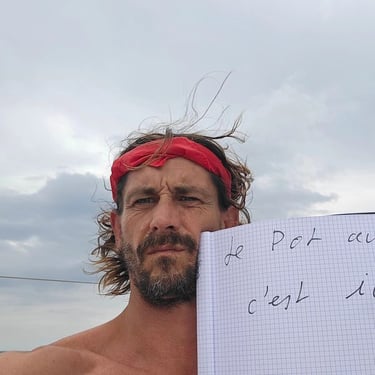 Le Pot au
c'est i